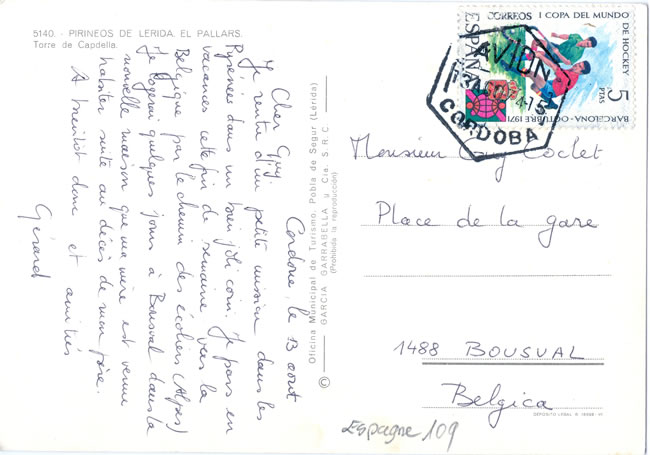 5140. - PIRINEOS DE LERIDA. EL PALLARS.
Torre de Capdella.
Cordoue, le 13 aout
Cher Guy,
Je rentre d'un petite mission dans les
Pyrénées dans un bien joli coin. Je pars en
vacances cette fin de semaine vers la
Belgique par le chemin des écoliers (Alpes)
Je logerai quelques jours à Bousval dans la
nouvelle maison que ma mère est venue
habiter suite au décès de mon père.
A bientôt donc et amitiés
Gérard
Oficina Municipal de Turismo. Pobla de Segur (Lérida)
© GARCIA GARRABELLA y Cía. S R C
(Prohibida la reproducción)
CORREOS I COPA DEL MUNDO
DE HOCKEY
ESPAÑA
5
PTAS
BARCELONA - OCTUBRE 1971
AVION
CORDOBA
Monsieur Guy Coclet
Place de la gare
1488 BOUSVAL
Belgica
DEPOSITO LEGAL B.
Espagne 109